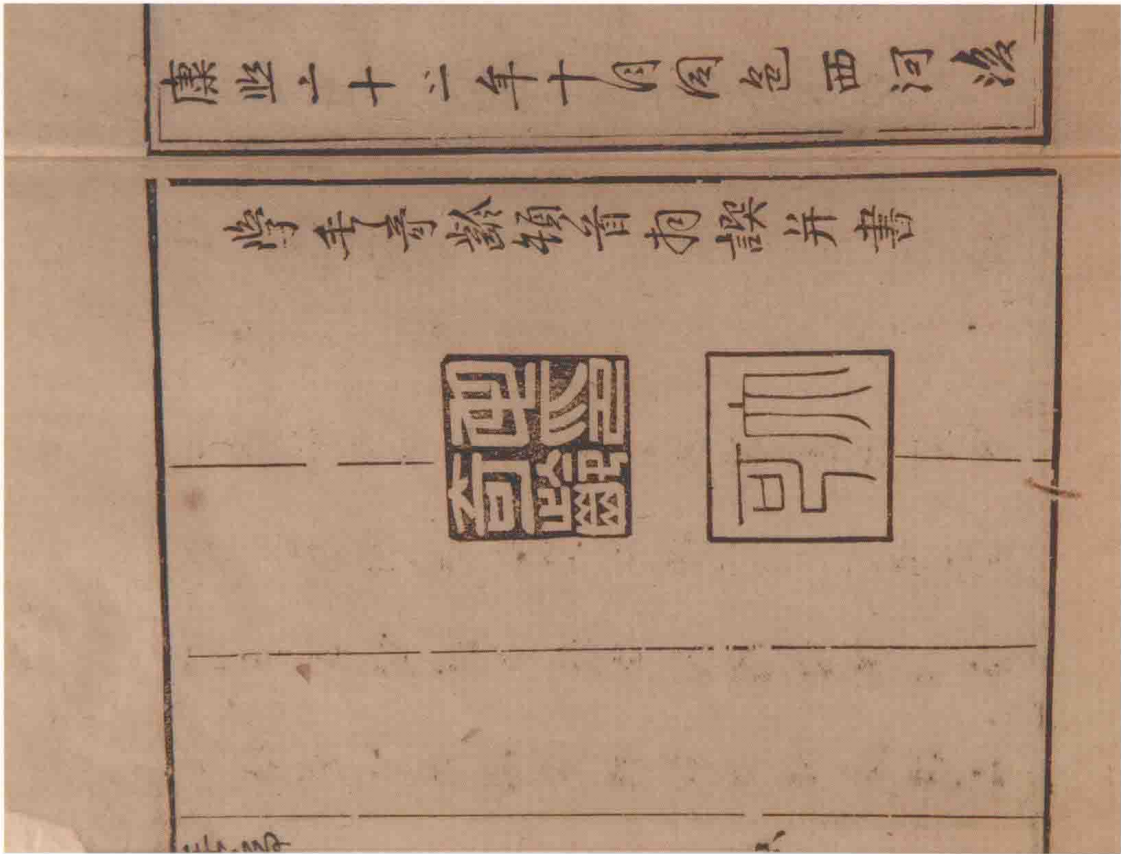 康熙二十二年十月同邑西河後
學毛奇齡頓首拜譔并書
大可